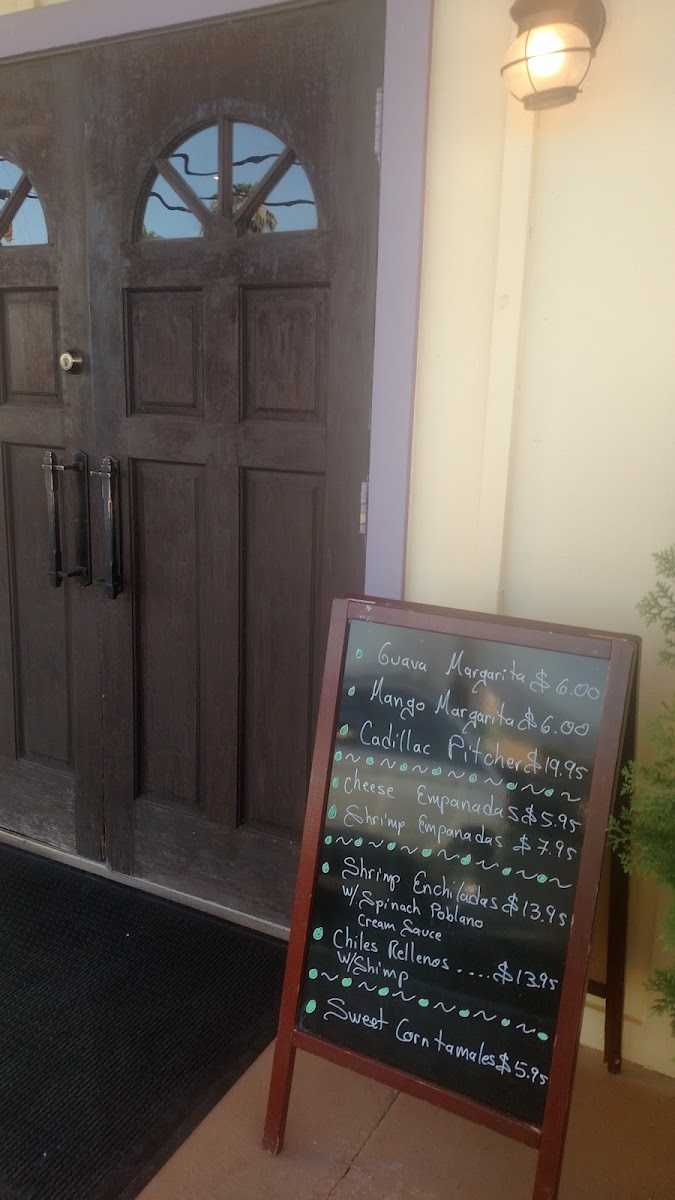 Guava Margarita $6.00
Mango Margarita $6.00
Cadillac Pitcher $19.95
Cheese Empanadas $5.95
Shrimp Empanadas $7.95
Shrimp Enchiladas $13.95
w/Spinach Poblano
Cream Sauce
Chiles Rellenos....$13.95
w/Shimp
Sweet Corn tamales $5.95